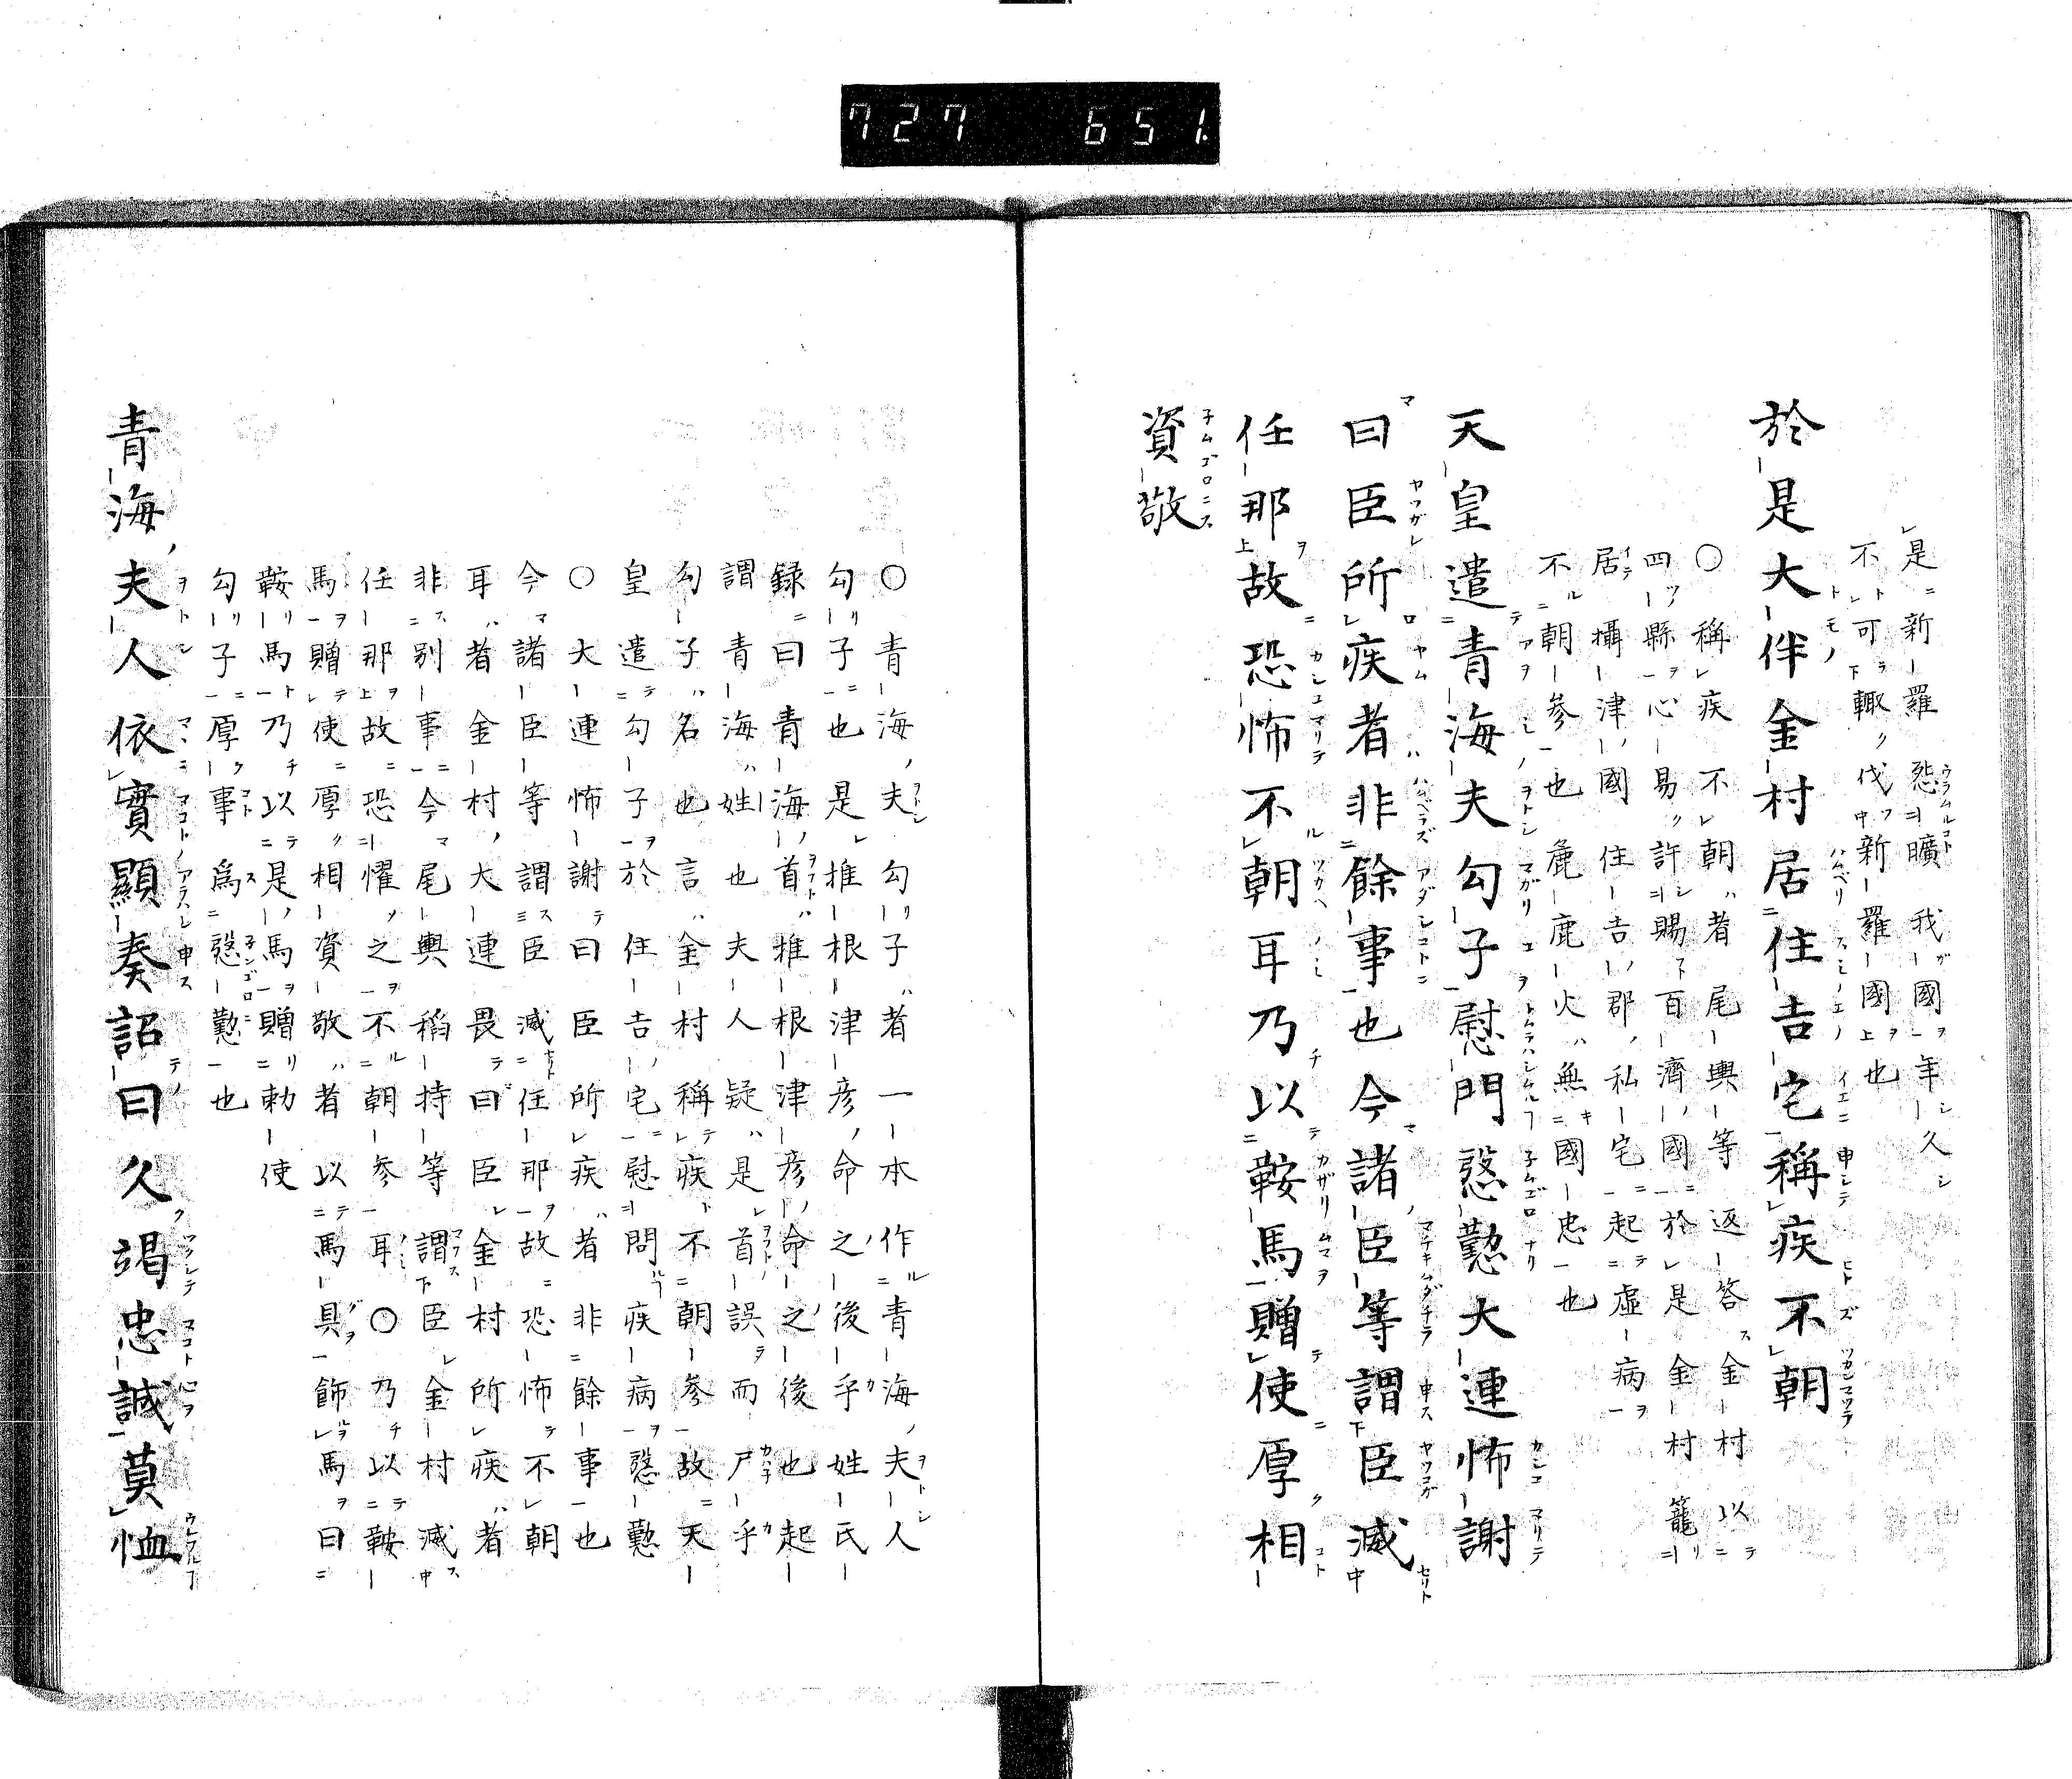 727 651
是新羅怨曠我國年久
不可輙伐新羅國也
於是大伴金村居住吉宅稱疾不朝
〇稱疾不朝者尾輿等返答金村以
四縣心易許賜百濟國於是金村籠
居攝津國住吉郡私宅起虛病
不朝參也麁鹿火無國忠也
天皇遣青海夫勾子慰門慇懃大連怖謝
曰臣所疾者非餘事也今諸臣等謂臣滅
任那故恐怖不朝耳乃以鞍馬贈使厚相
資敬
〇青海夫勾子者一本作青海夫人
勾子也是推根津彦命之後乎姓氏
録曰青海首推根津彦命之後也起
謂青海姓也夫人疑是首誤而尸乎
勾子名也言金村稱疾不朝參故天
皇遣勾子於住吉宅慰問疾病慇懃
〇大連怖謝曰臣所疾者非餘事也
今諸臣等謂臣滅任那故恐怖不朝
耳者金村大連畏曰臣金村所疾者
非別事今尾輿稻持等謂臣金村滅
任那故恐懼之不朝參耳〇乃以鞍
馬贈使厚相資敬者以馬具飾馬曰
鞍馬乃以是馬贈勅使
勾子厚事爲慇懃也
青海夫人依實顯奏詔曰久竭忠誠莫恤